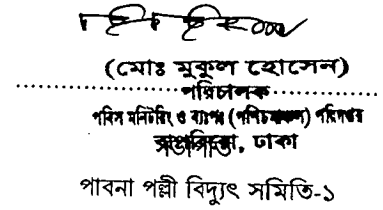 (মোঃ মুকুল হোসেন)
পরিচালক
পবিস মনিটরিং ও ব্যবস্থাপনা (পশ্চিমাঞ্চল) পরিদপ্তর
ঢাকা
পাবনা পল্লী বিদ্যুৎ সমিতি-১